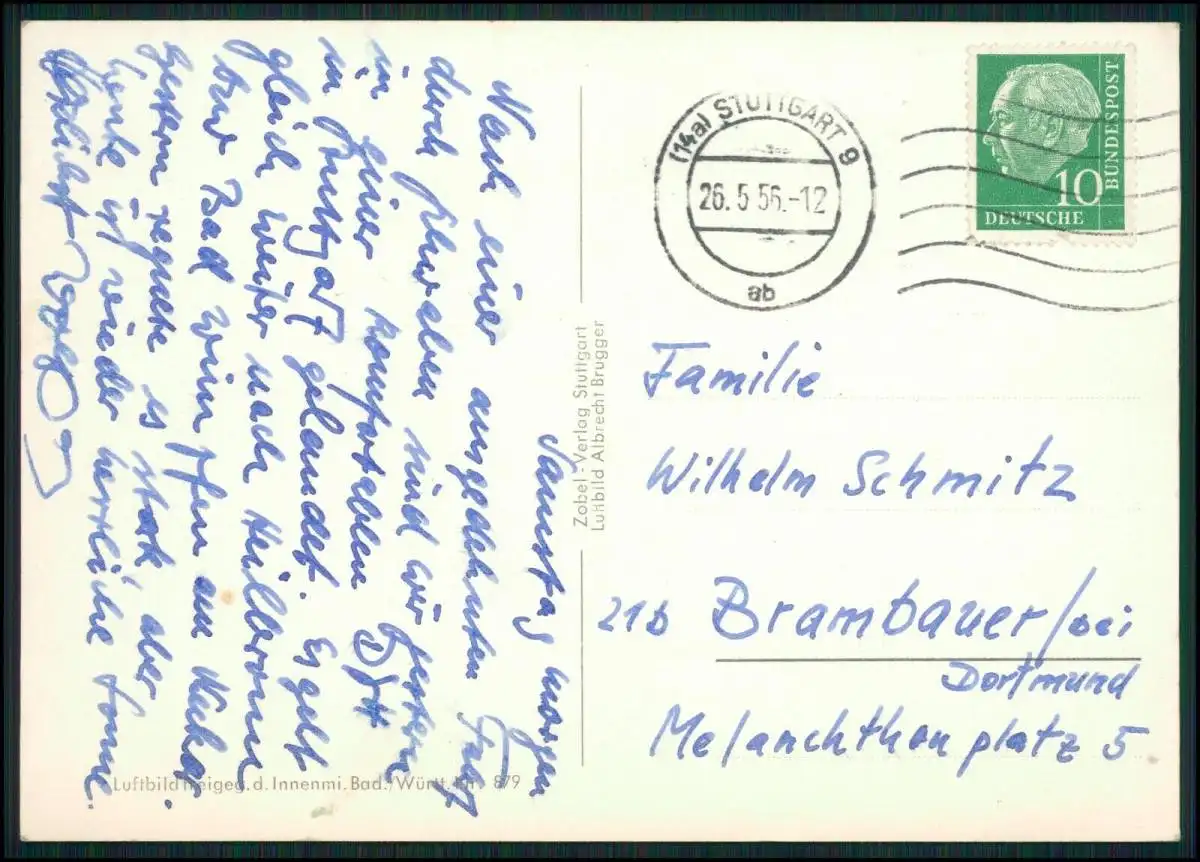 Samstag morgen
Nach einer ausgedehnten Fahrt
durch Schwaben sind wir gestern
in einer komfortablen Bett
in Stuttgart gelandet. Es geht
gleich weiter nach Heilbronn
bzw Bad Wimpfen am Neckar.
Gestern regnete es stark aber
heute ist wieder herrliche Sonne.
Herzlichst
(14a) STUTTGART 9
26.5.56.-12
ab
DEUTSCHE
BUNDESPOST
10
Zobel-Verlag Stuttgart
Luftbild Albrecht Brugger
Familie
Wilhelm Schmitz
21b Brambauer/bei
Dortmund
Melanchthonplatz 5
Luftbild freigeg. d. Innenmi. Bad./Württ. 879